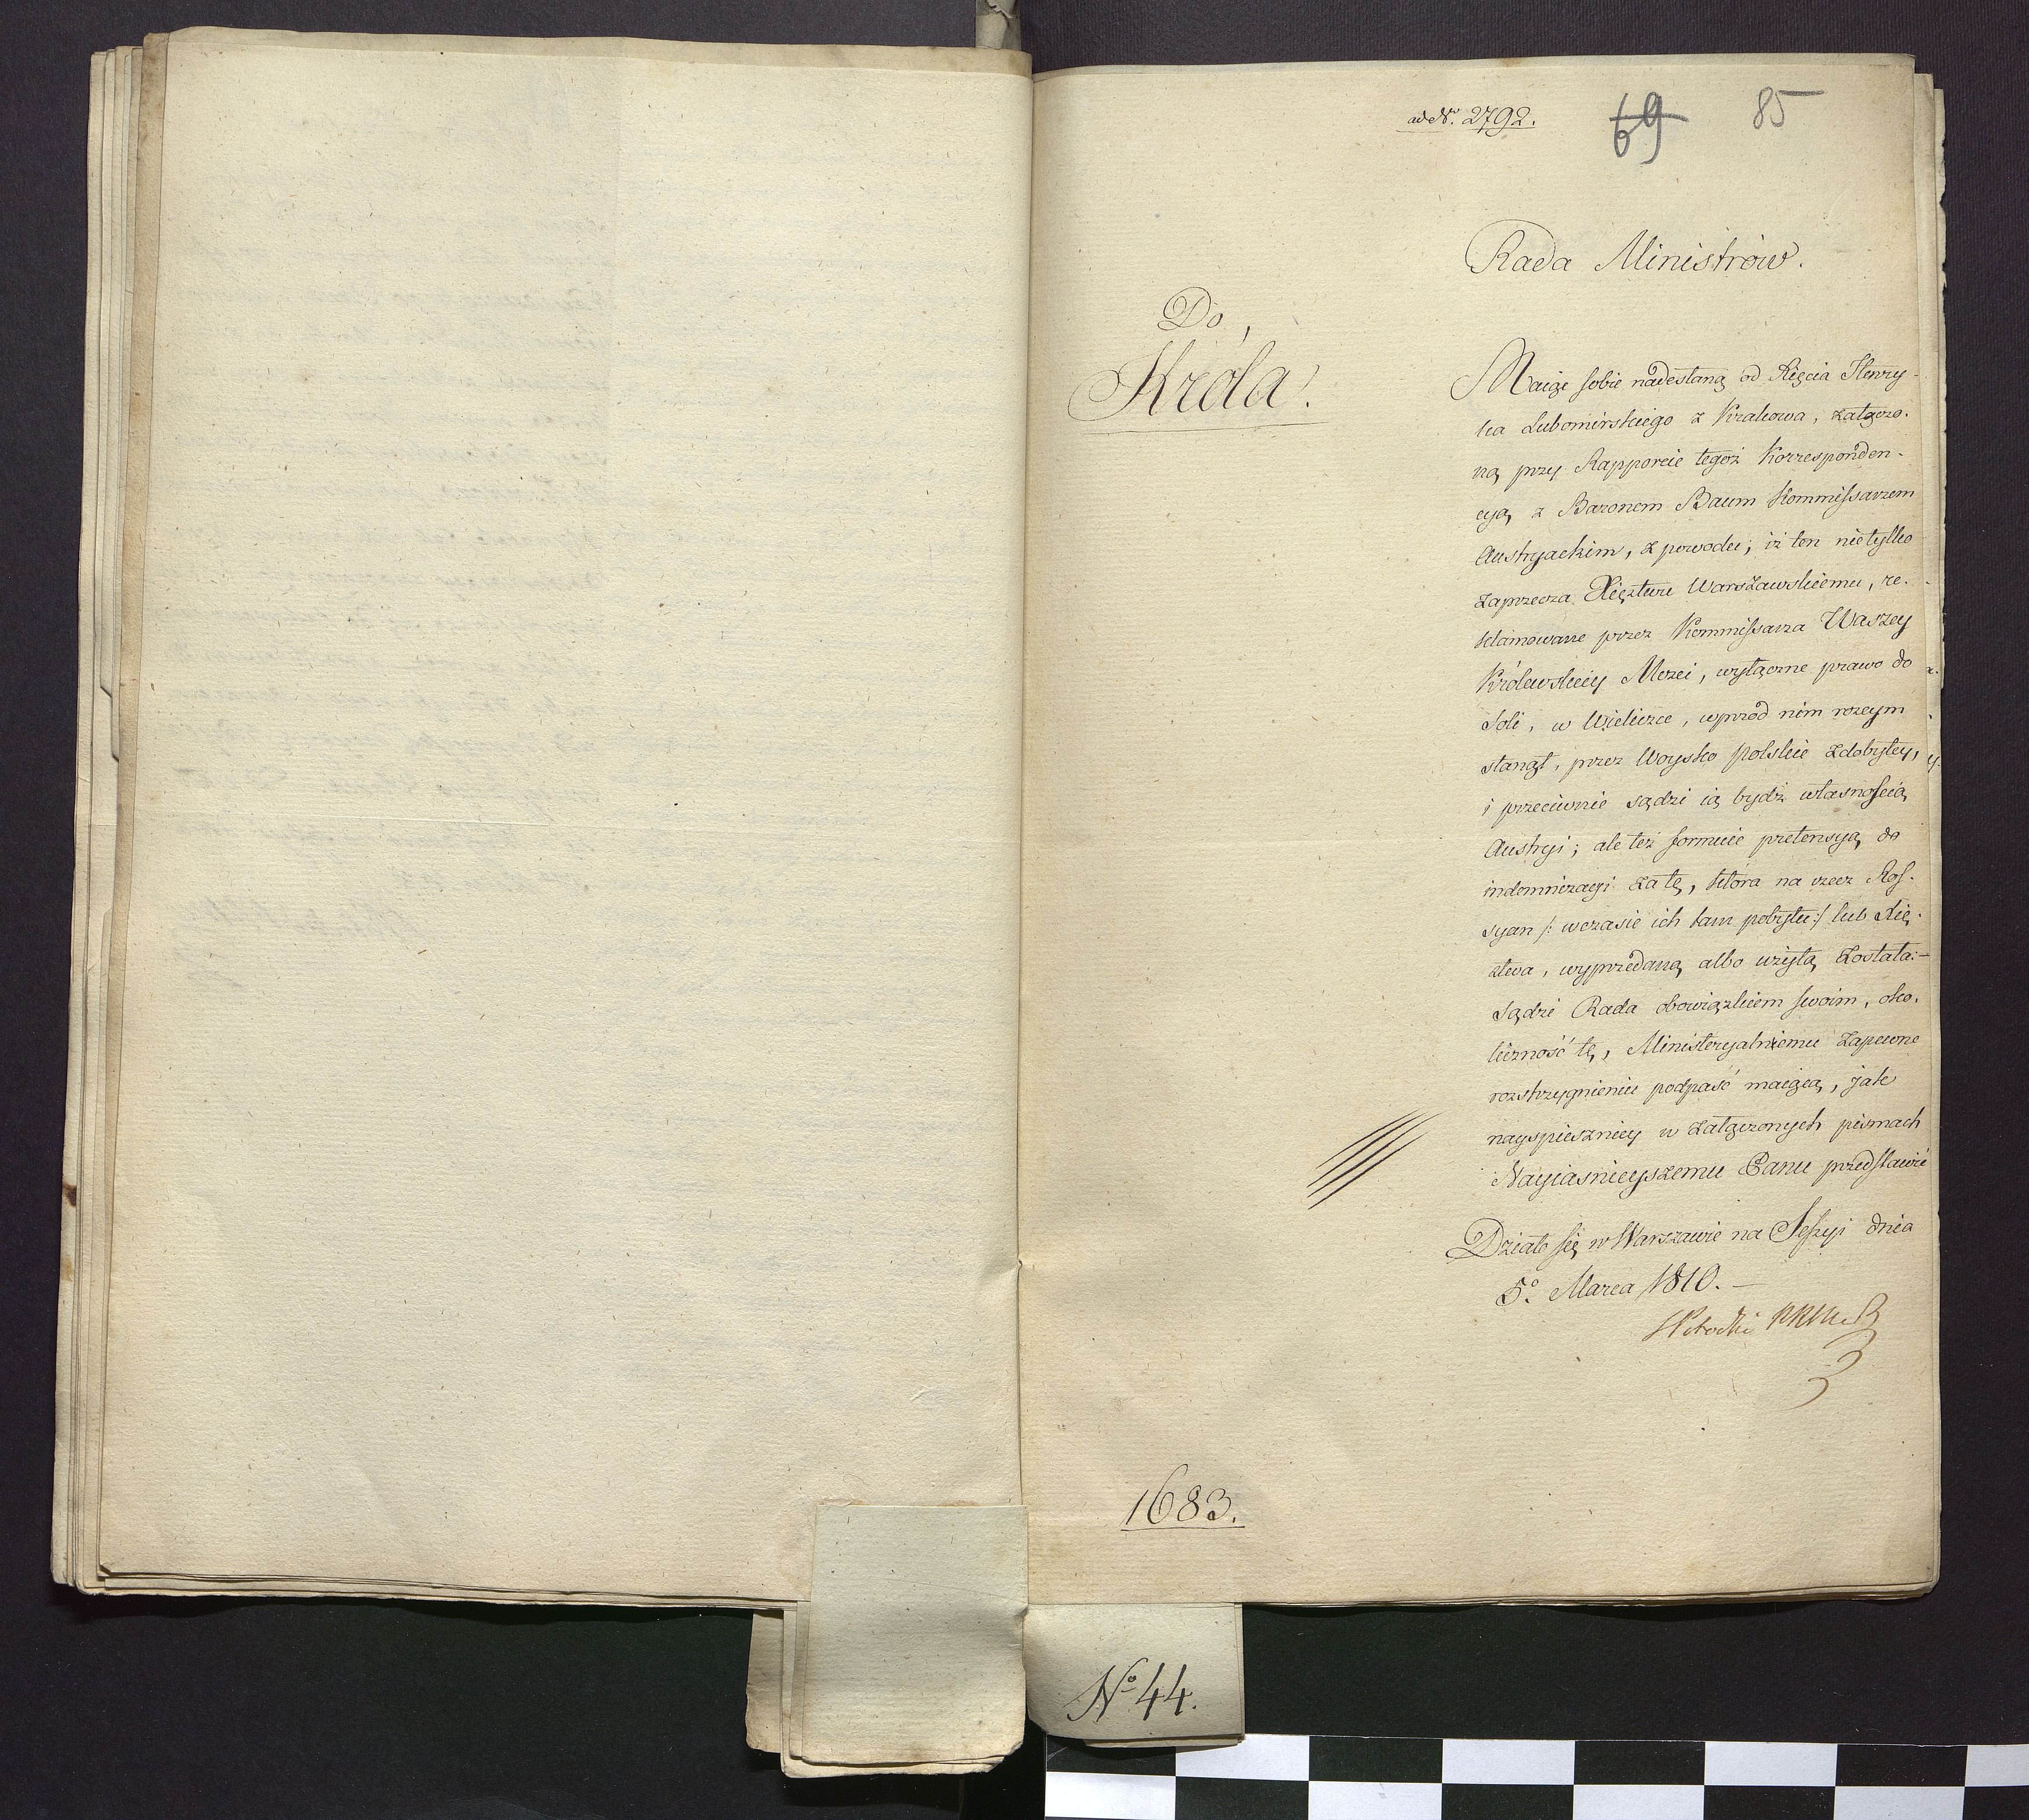 ad Nr. 2792.
69 85
Rada Ministrów.
Do
Króla!
Maiąc sobie nadesłaną od Xięcia Henry-
ka Lubomirskiego z Krakowa, załączo-
ną przy Rapporcie tegoż Korresponden-
cyą z Baronem Baum Kommissarzem
Austryackim, z powodu; iż ten nietylko
zaprzecza Xięztwu Warszawskiemu, re-
klamowane przez Kommissarza Waszey
Królewskiey Mości, wyłączne prawo do
Soli, w Wieliczce, wprzód nim rozeym
stanął, przez Woysko polskie zdobytey,
i przeciwnie sądzi ią bydź własnością
Austryi; ale też formuie pretensyą do
indemnizacyi za tę, która na rzecz Ros-
syan /: w czasie ich tam pobytu:/ lub Xię-
ztwa, wyprzedaną albo użytą została:-
sądzi Rada obowiązkiem swoim, oko-
liczność tę, Ministeryalnemu zapewne
rozstrzygnieniu podpaść maiącą, jak
nayspieszniey w załączonych pismach
Nayiaśnieyszemu Panu przedstawić
Działo się w Warszawie na Sessyi dnia
5o. Marca 1810. —
SPotocki PRMtrów
1683.
No 44.